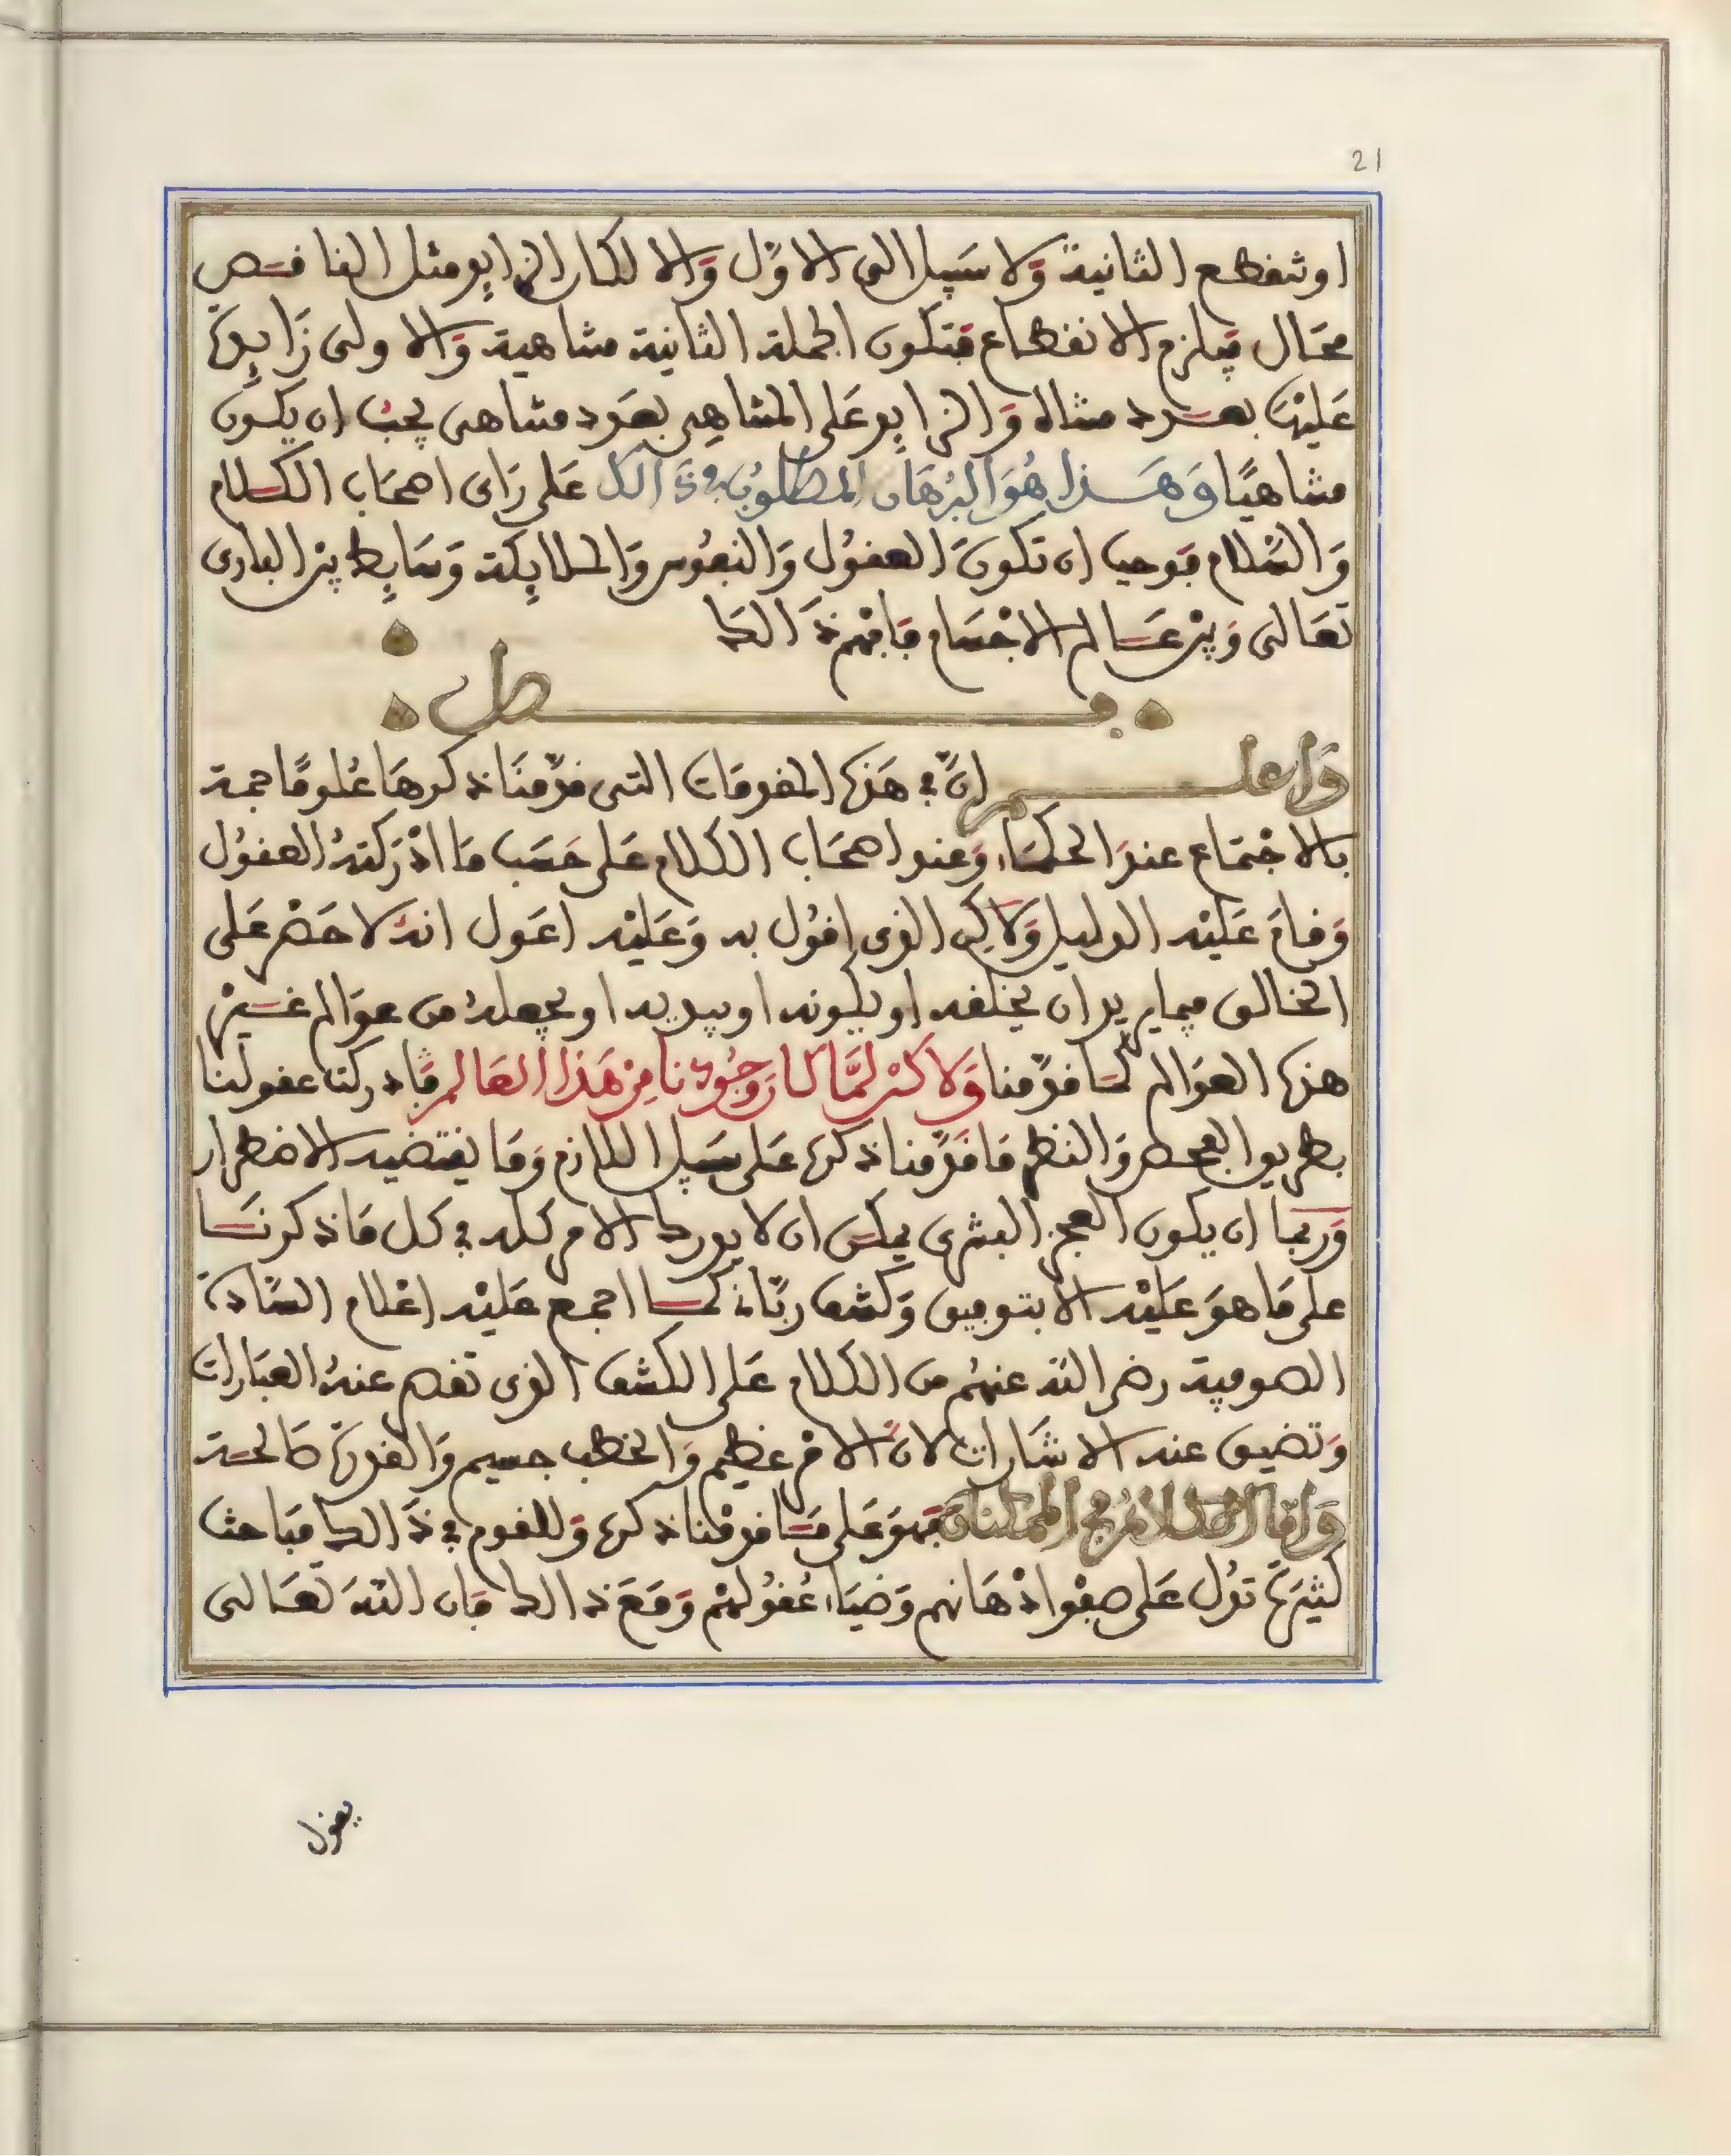 21
او تنقطع الثانية وَلا سَبيل الى الاوّل وَالا لكان الزايد مثل الناقص
محَال فيلزم الانقطاع فتكون الجملة الثانية متناهية وَالاولى زَايدة
عَليْهَا بعدد متناه وَالزايد عَلى المتناهِى بعَدد متناهى يجبُ ان يكون
متناهيًا وَهَذا هُوَ البُرهَان المطلوُب في ذَالك عَلى رَاى اصحَاب الكلام
وَالسَّلام فوجب ان تكونَ العقوُل وَالنفوُس وَالملايِكة وَسَايِط بيْن البارى
تعَالى وَبيْن عَالم الاجْسَام فافهْم ذَالك
فصل
وَاعلم انّ في هَذه المقدمَات التى قدّمنَا ذكرهَا عُلومًا جمة
بالاجْتمَاع عندَ الحكمَاء وَعند اصحَاب الكلام عَلى حَسَب مَا ادْرَكتهُ العقوُل
وَقامَ عَليْه الدليل وَلاكِن الذى اقوُل به وَعَليْه اعَول انهُ لا حَصْر عَلى
الخالق فيما يريد ان يخلقه او يكونه او يبديه او يجعلهُ من عوَالم غيْر
هذه العوَالم كما قدّمنا وَلاكنْ لمَّا كان وَجُودنا مِنْ هَذا العَالم فادركت عقولنا
بطريق الفحص وَالنظر مَا قدّمنا ذكره عَلى سَبيل اللازم وَمَا يقتضيه الاضطرار
وَربمَا ان يكون العجز البشرى يمكن ان لا يورد الامر كله في كل مَا ذكرنا
على مَا هوَ عَليْه الا بتوفيق وَكشف ربّانى كما اجمع عَليْه اعْلام السَّادة
الصوفية رضى الله عنهُم من الكلام عَلى الكشف الذى تقصر عنهُ العبَارات
وَتضيق عنه الاشارات لانّ الامْر عَظيم وَالخطب جسيم وَالقدرة صَالحة
وَامَّا الامر في الممكنات فهوَ عَلى مَا قدمْنا ذكره وَللقوم في ذَالك مبَاحث
كثيرَة تدُل عَلى صفو اذْهَانهم وَضيَاء عُقوُلهْم وَمَعَ ذالك فان اللهَ تعَالى
يقول